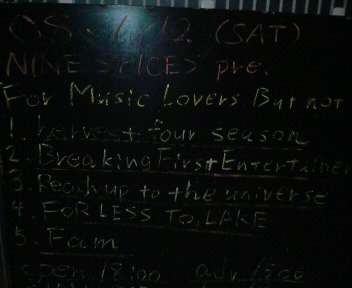 (SAT)
NINE SPICES pre.
For Music Lovers But not
1. harvest four season
2. Breaking First Entertainer
3. Reach up to the universe
4. FOR LESS TO, LAKE
5. Fam
open 18:00 adv